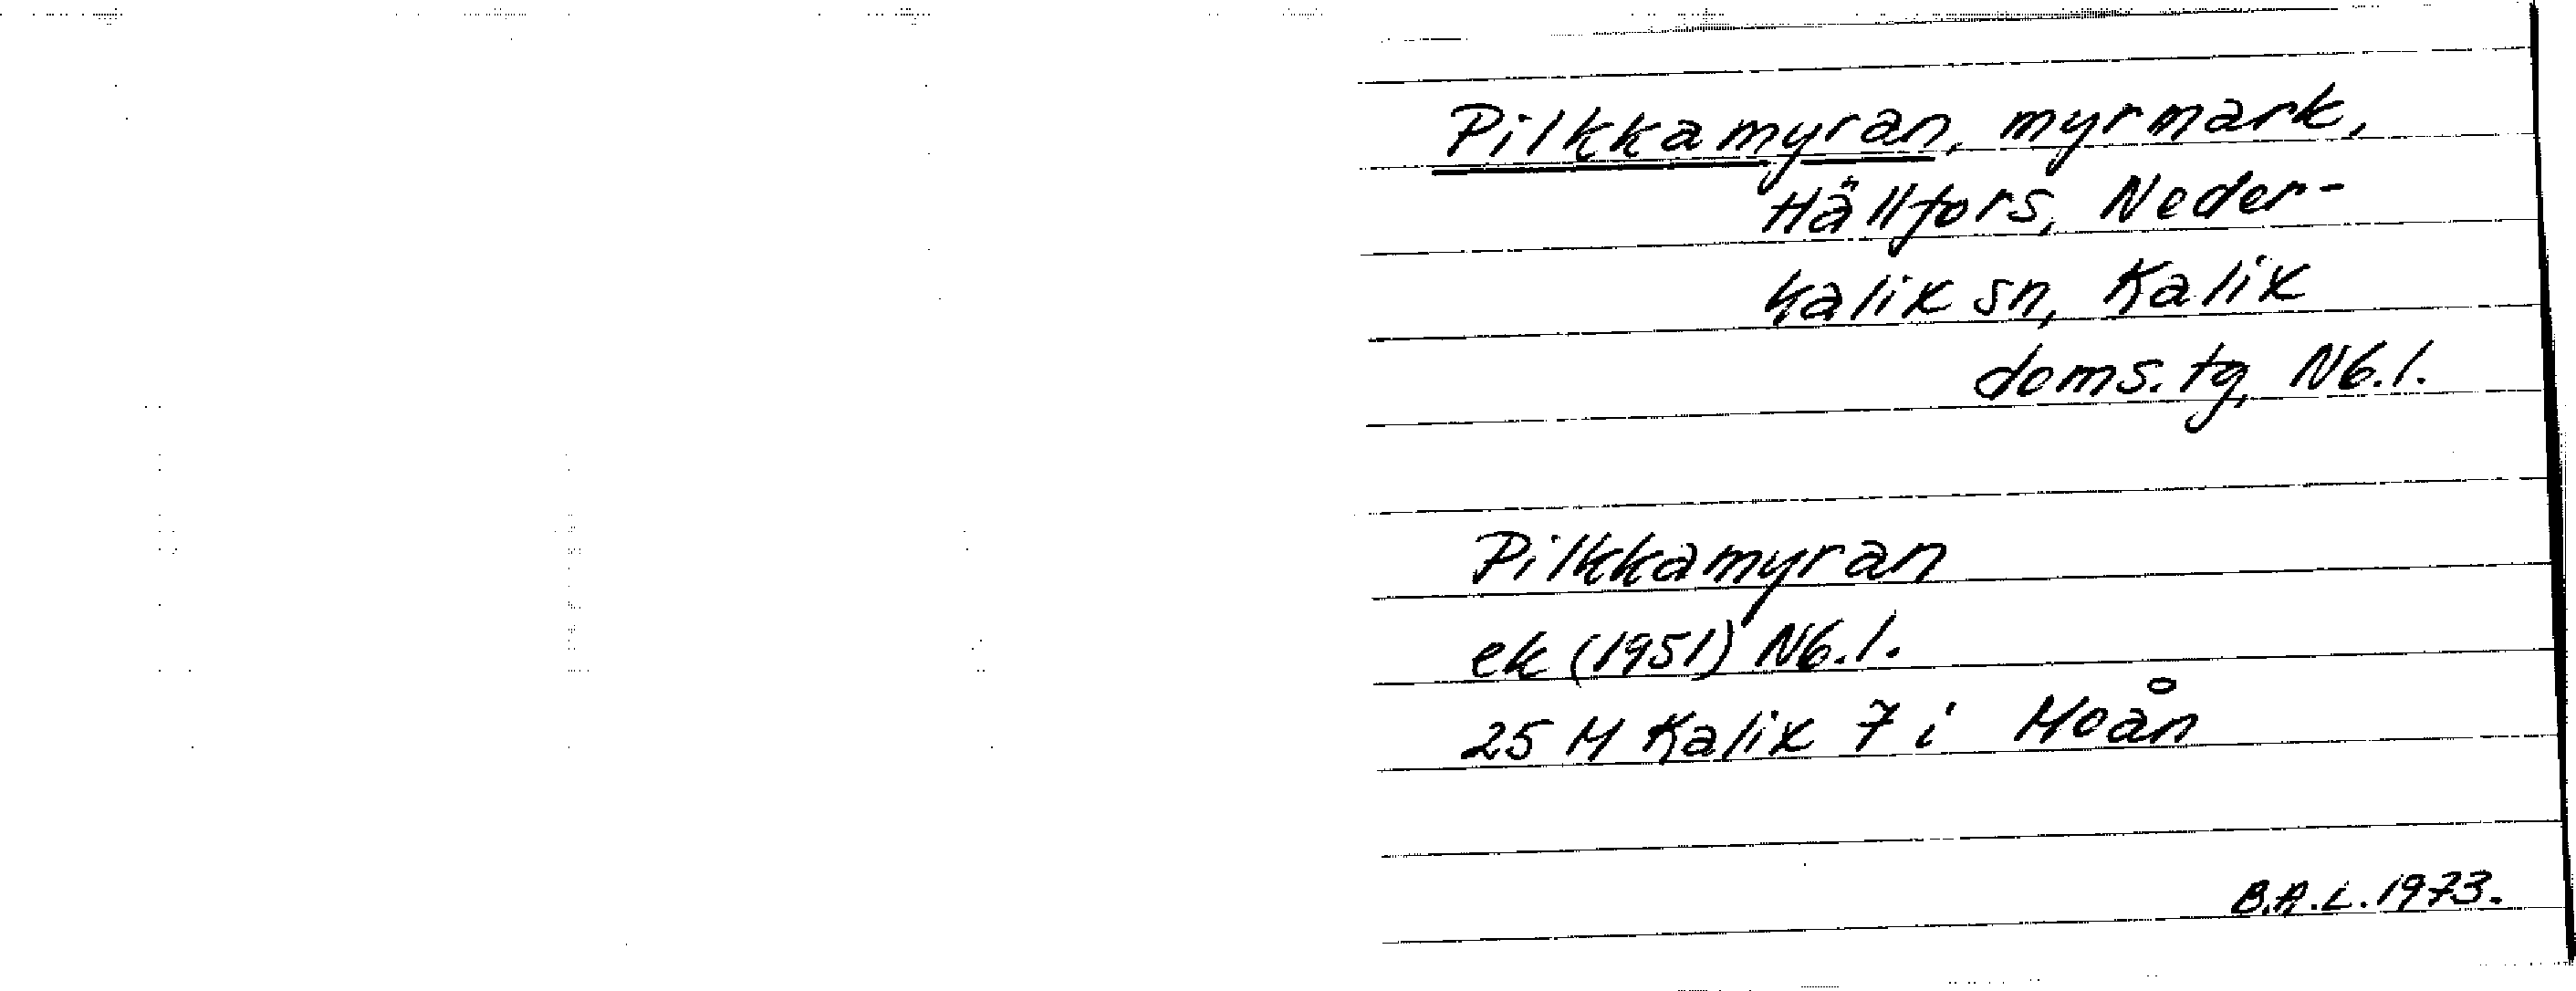 Pilkkamyran, myrmark,
Hällfors, Neder-
kalix sn, Kalix
doms. tg, Nb. l.
Pilkkamyran
ek (1951) Nb. l.
25 M Kalix 7 i Moån
B.A.L. 1973.